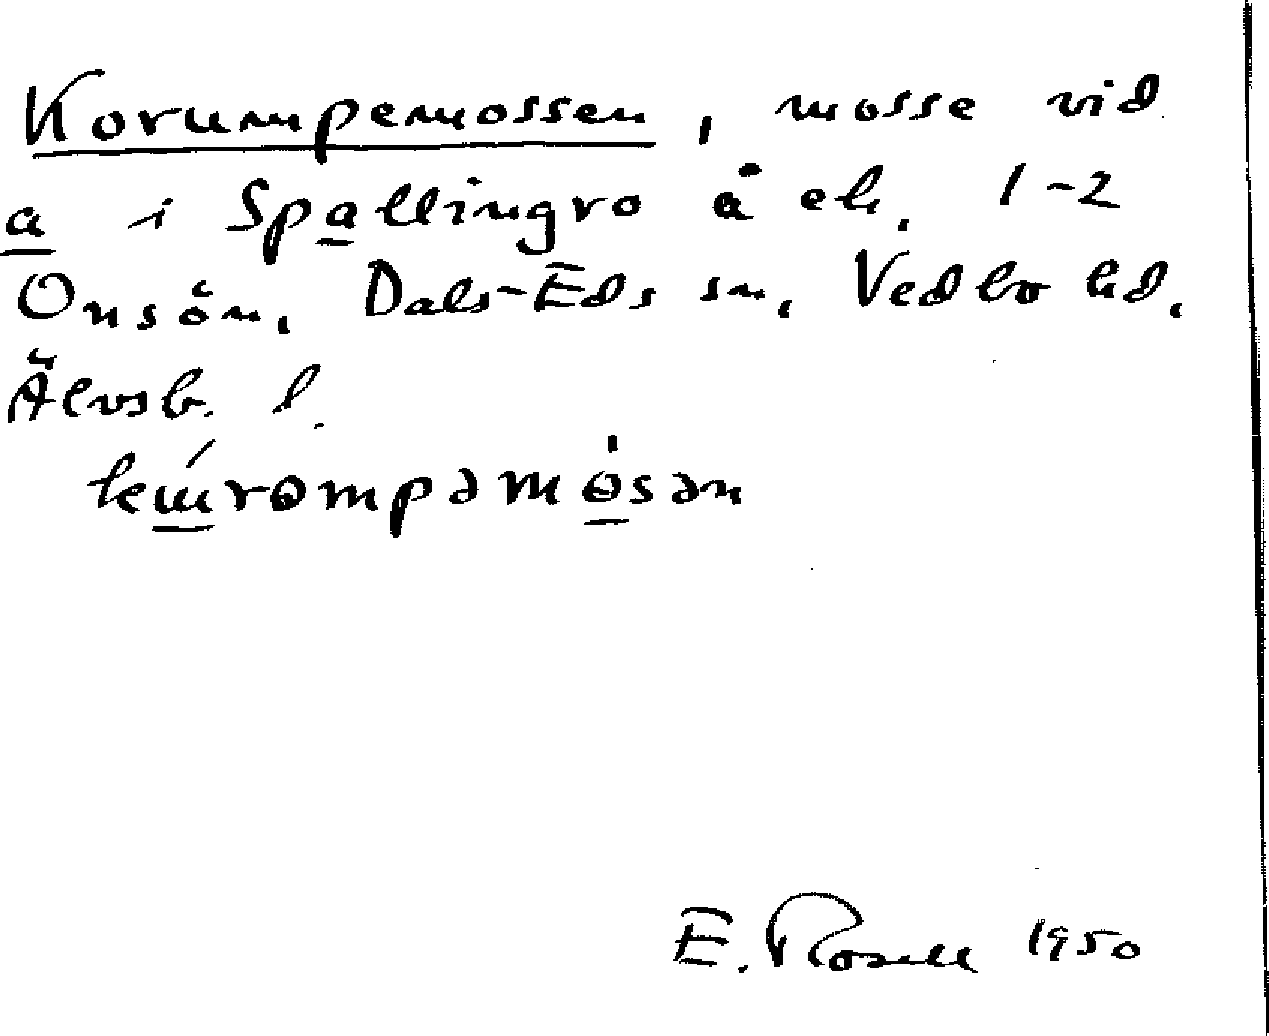 Korumpemossen, mosse vid
a i Spallingro å ek. 1-2
Onsön, Dals-Eds sn, Vedbo hd,
Älvsb. l.
E. Rosell 1950